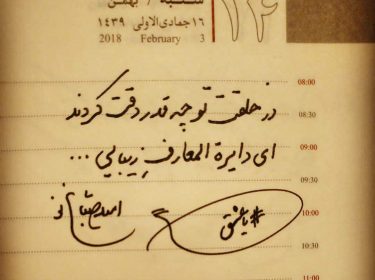 شنبه / بهمن
۱۴
۱۶ جمادی‌الاولی ۱۴۳۹
2018 February 3
08:00
در خلقت تو چه قدر دقت کردند
08:30
ای دایرة المعارفِ زیبایی ...
09:00
09:30
امید صباغ نو
#یا_عشق
10:00
10:30
11:00